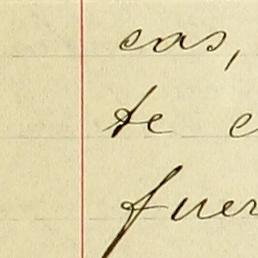 cas,
te c
fuer